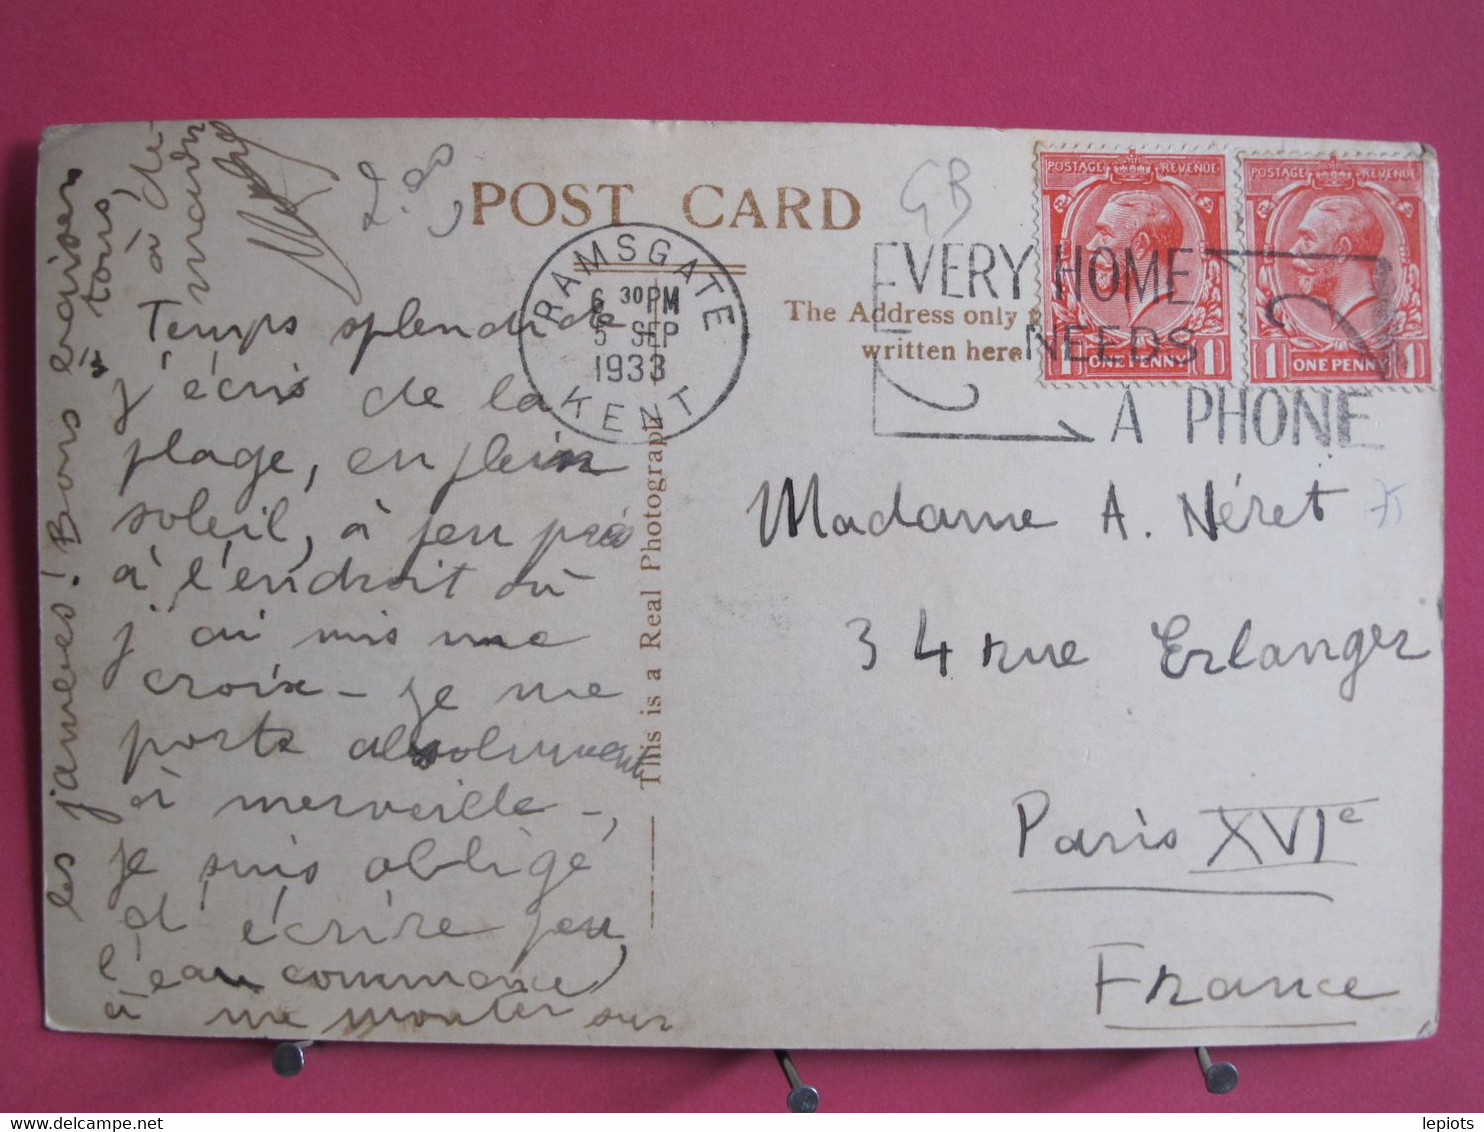 POST CARD
GB
RAMSGATE
6 30 PM
5 SEP
1933
KENT
EVERY HOME
NEEDS
A PHONE
POSTAGE REVENUE
1 ONE PENNY 1
POSTAGE REVENUE
1 ONE PENNY 1
The Address only
written here
This is a Real Photograph
Temps splendide
j'écris de la
plage, en plein
soleil, à peu près
à l'endroit où
j'ai mis une
croix - je me
porte absolument
à merveille -,
je suis obligé
d'écrire peu,
l'eau commence
à me monter sur
les jambes! Bons baisers
à tous,
à di-
manche
Madame A. Néret
34 rue Erlanger
Paris XVIe
France
lepiots